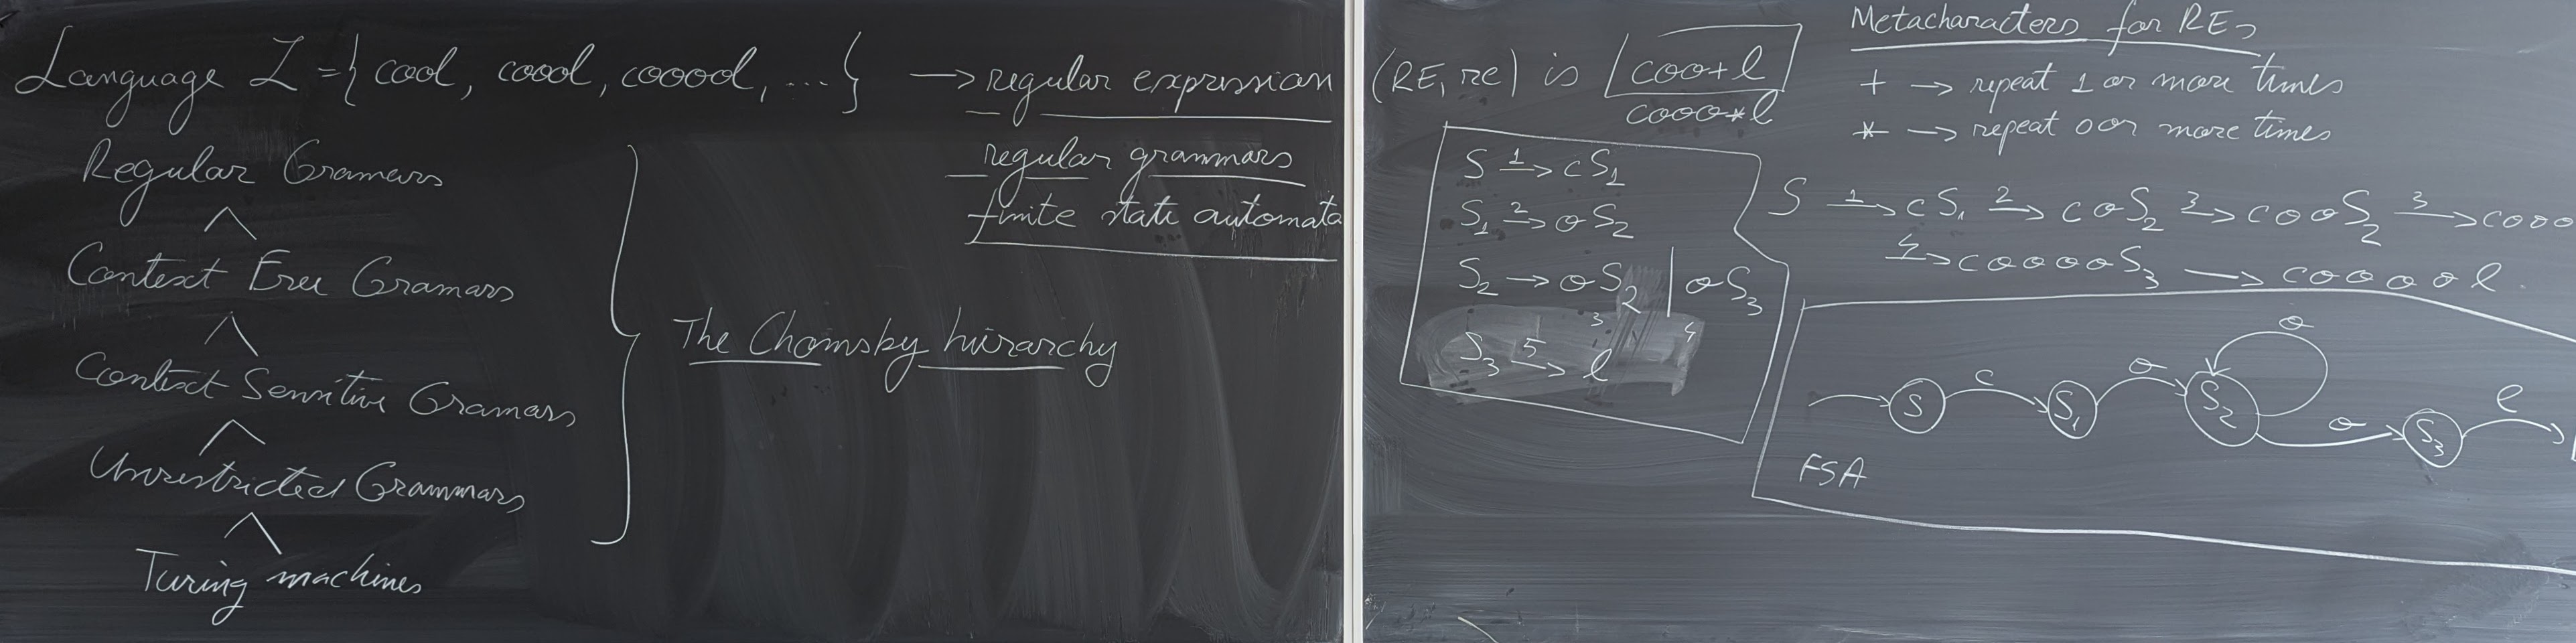 Language L = { cool, coool, cooool, ... } → regular expression
regular grammars
finite state automata
Regular Gramars
Context Free Gramars
Context Sensitive Gramars
Unrestricted Grammars
Turing machines
The Chomsky hierarchy
(RE, re) is coo+l
cooo*l
Metacharacters for REs
+ → repeat 1 or more times
* → repeat 0 or more times
S 1→ cS1
S1 2→ oS2
S2 → oS2 | oS3
3 4
S3 5→ l
S 1→ cS1 2→ coS2 3→ cooS2 3→ cooo
4→ cooooS3 → cooool
S c S1 o S2 o o S3 l
FSA